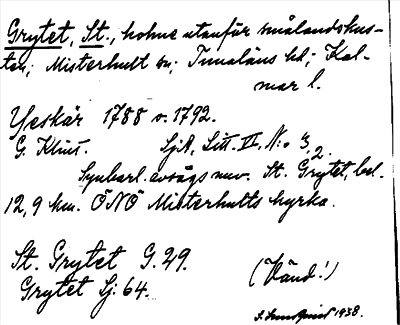 Grytet, St., holme utanför smålandskus-
ten; Misterhult sn; Tunaläns hd; Kal-
mar l.
Yeskär 1788 o. 1792.
G. Klint. SjA, Litt. II, No 3,2.
Synbarl. avsågs nuv. St. Grytet, bel.
12,9 km. ÖNÖ Misterhults kyrka.
St. Grytet G. 29.
Grytet Sj. 64. (Vänd!)
1938.